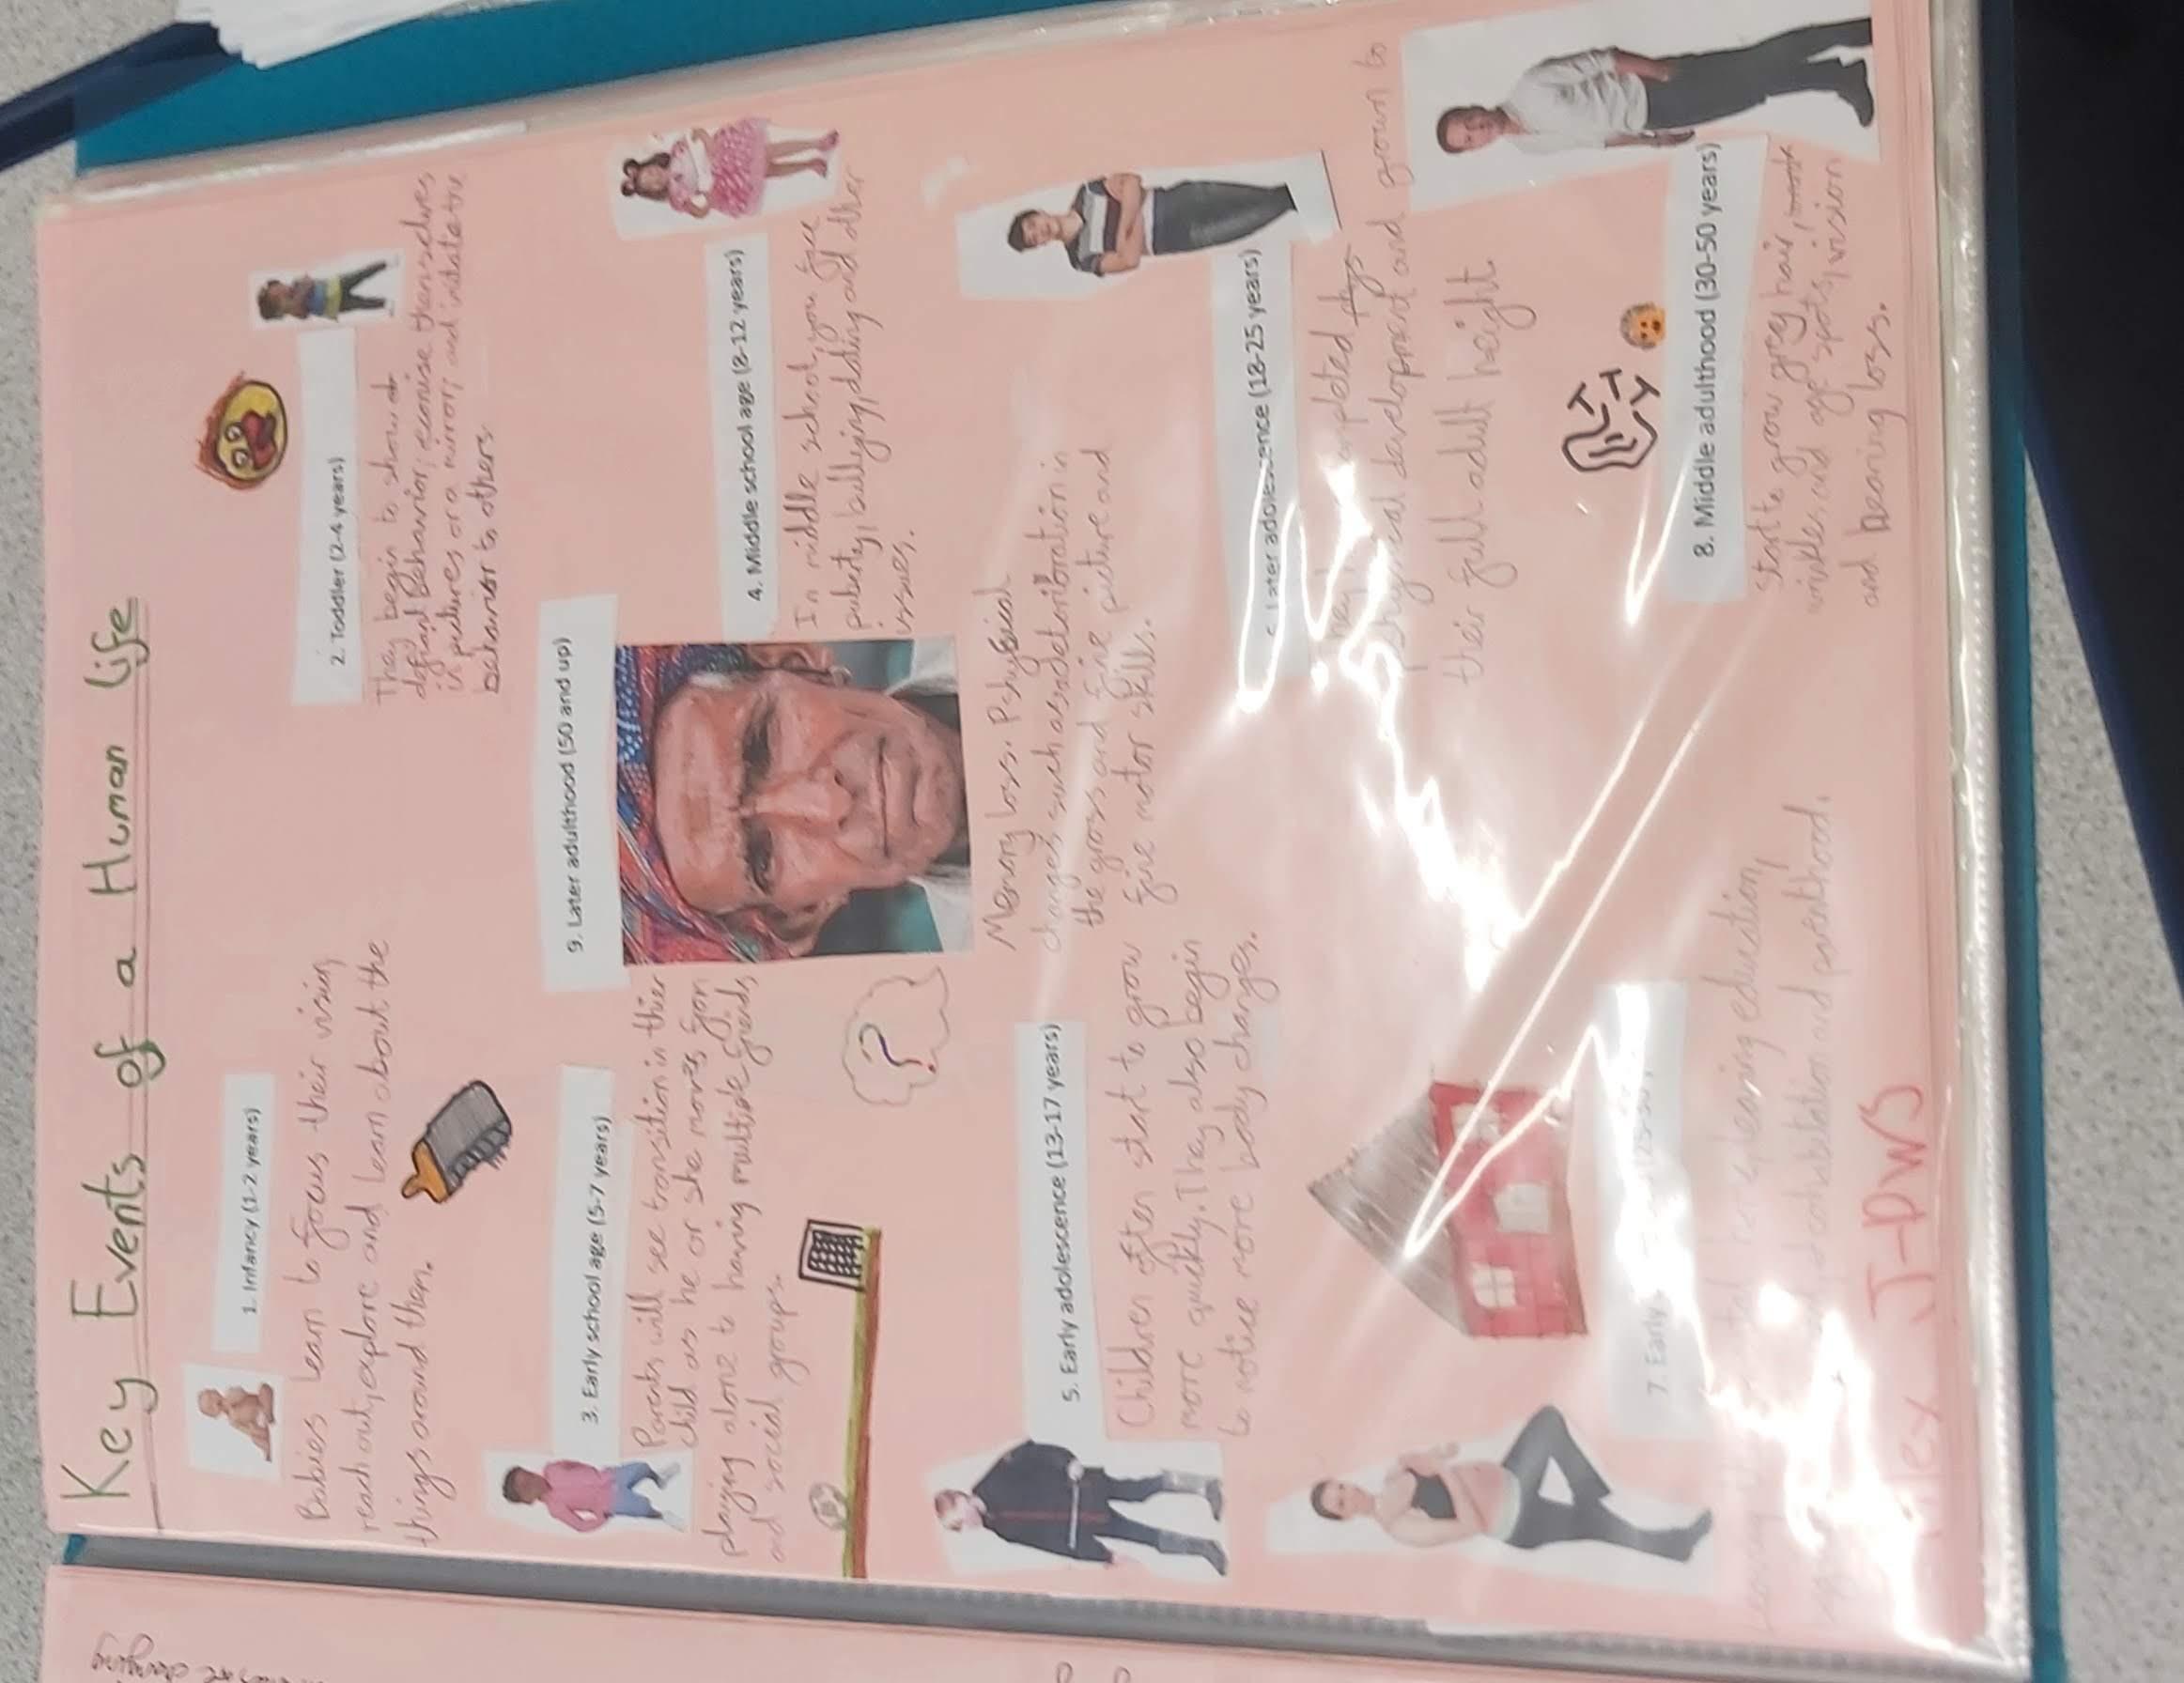 Key Events of a Human life
1. Infancy (1-2 years)
Babies learn to focus their vision,
reach out, explore and learn about the
things around them.
2. Toddler (2-4 years)
They begin to show
defiant behavior, reconise themselves
in pictures or a mirror, and imitate the
behavior to others.
3. Early school age (5-7 years)
Parents will see transition in thier
child as he or she moves from
playing alone to having multiple freinds,
and social groups.
9. Later adulthood (50 and up)
Memory loss. Pshysical
changes such as
the gross and fine picture and
fine motor skills.
?
4. Middle school age (8-12 years)
In middle school, you face
puberty, bullying, dating and other
issues.
5. Early adolescence (13-17 years)
Children often start to grow
more quickly. They also begin
to notice more body changes.
Later adolescence (18-25 years)
development and grown to
their full adult height.
7. Early
leaving education,
cohabitation and parenthood.
8. Middle adulthood (30-50 years)
Start to grow grey hair,
and age spots, vision
and hearing loss.
Alex J-PWS
changing